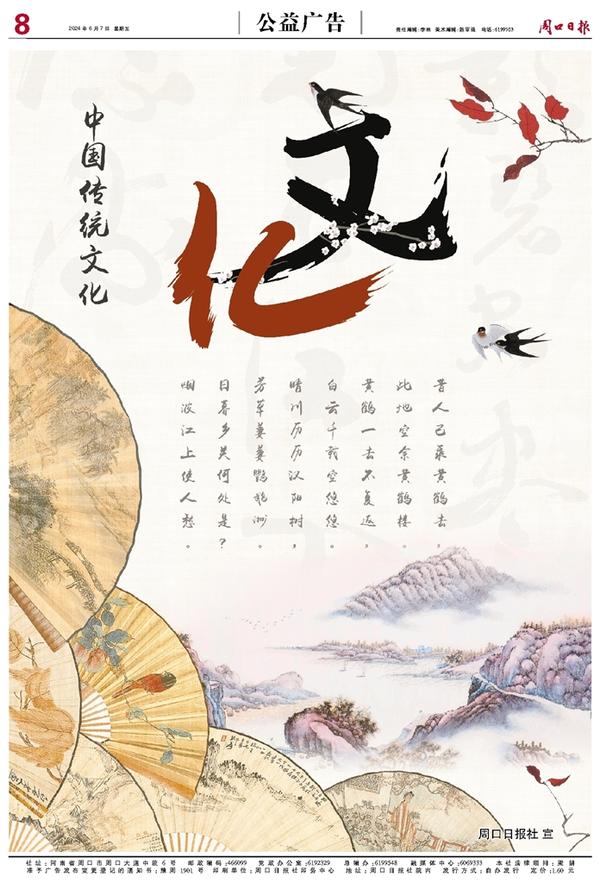 8
2024 年 6 月 7 日 星期五
公益广告
周口日报
中国传统文化
文化
昔人已乘黄鹤去，
此地空余黄鹤楼。
黄鹤一去不复返，
白云千载空悠悠。
晴川历历汉阳树，
芳草萋萋鹦鹉洲。
日暮乡关何处是？
烟波江上使人愁。
周口日报社 宣
社 址：河南省周口市周口大道中段 6 号 邮政编码：466099 党政办公室：6192329 总编办：6199548 融媒体中心：6069333 本社法律顾问：
准予广告发布变更登记的通知书：豫周 1901 号 印刷单位：周口日报社印务中心 地址：周口日报社院内 发行方式：自办发行 定价：1.60 元